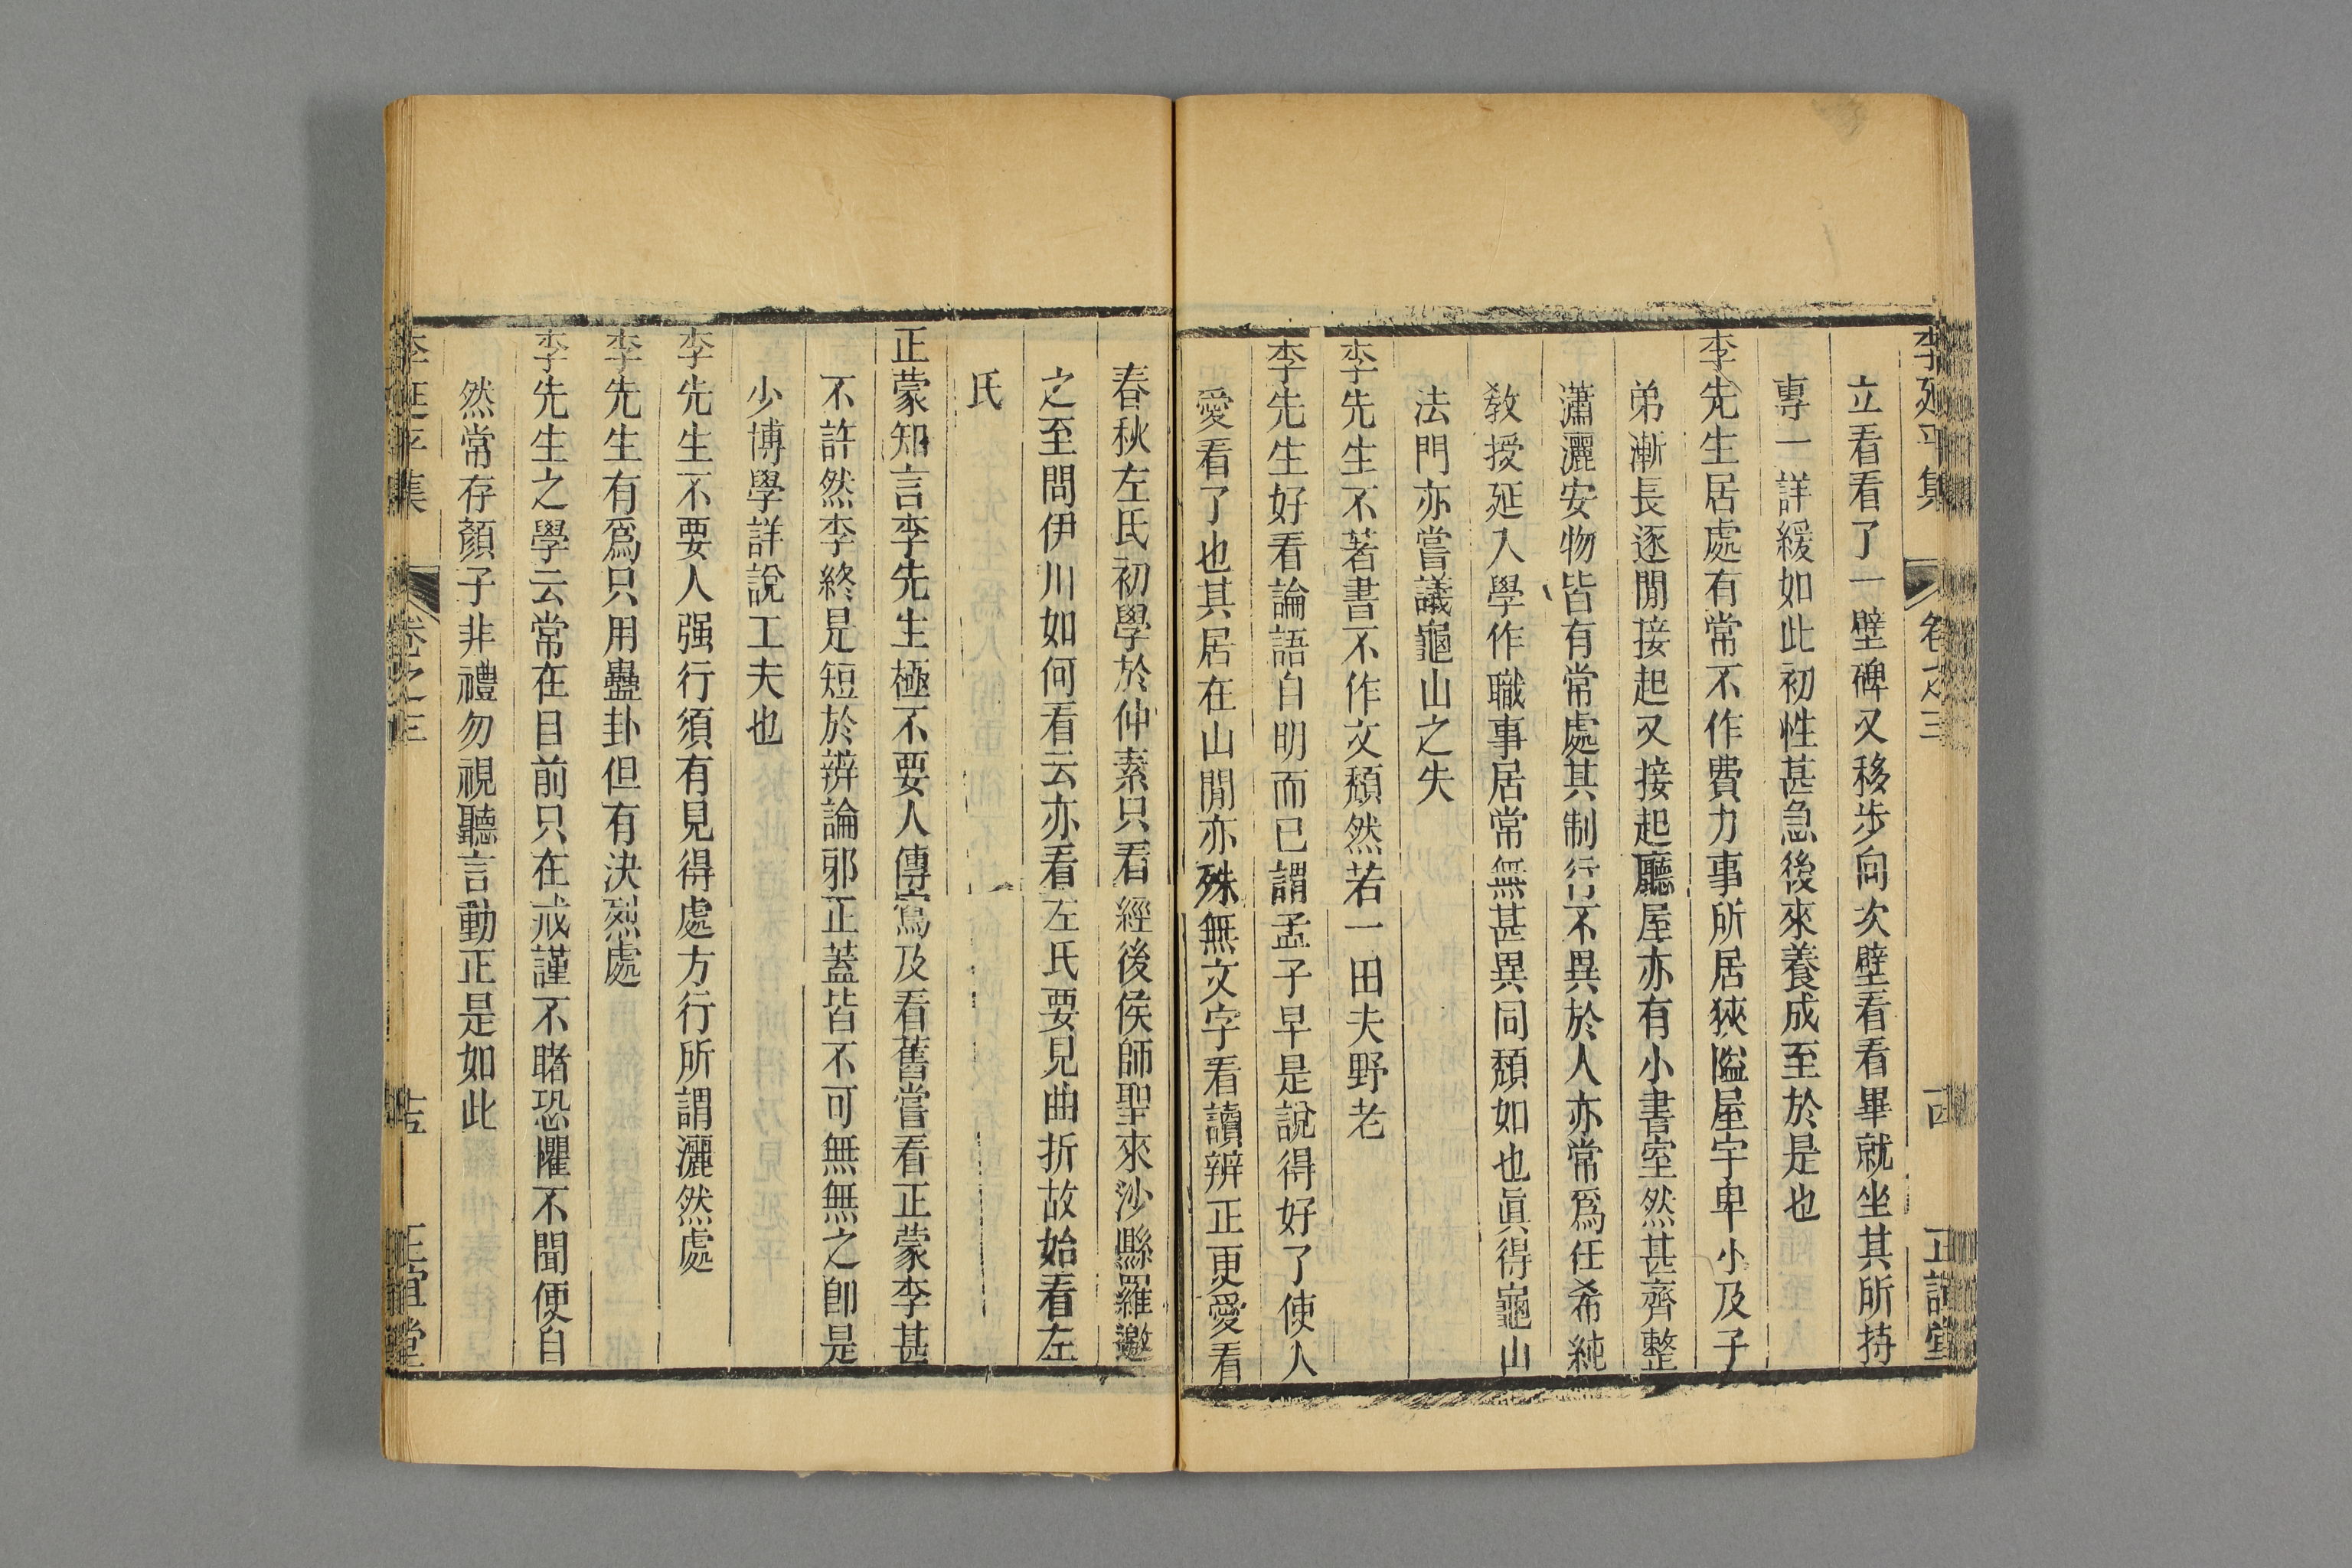 李延平集 卷之三 正誼堂
立看看了一壁碑又移步向次壁看看畢就坐其所持
專一詳緩如此初性甚急後來養成至於是也
李先生居處有常不作費力事所居狹隘屋宇卑小及子
弟漸長逐間接起又接起廳屋亦有小書室然甚齊整
瀟灑安物皆有常處其制行不異於人亦常爲任希純
敎授延入學作職事居常無甚異同頹如也眞得龜山
法門亦嘗議龜山之失
李先生不著書不作文頹然若一田夫野老
李先生好看論語自明而已謂孟子早是說得好了使人
愛看了也其居在山間亦殊無文字看讀辨正更愛看
春秋左氏初學於仲素只看經後侯師聖來沙縣羅邀
之至問伊川如何看云亦看左氏要見曲折故始看左
氏
正蒙知言李先生極不要人傳寫及看舊嘗看正蒙李甚
不許然李終是短於辨論邪正蓋皆不可無無之卽是
少博學詳說工夫也
李先生不要人强行須有見得處方行所謂灑然處
李先生有爲只用蠱卦但有決烈處
李先生之學云常在目前只在戒謹不睹恐懼不聞便自
然常存顏子非禮勿視聽言動正是如此
李延平集 卷之三 正誼堂